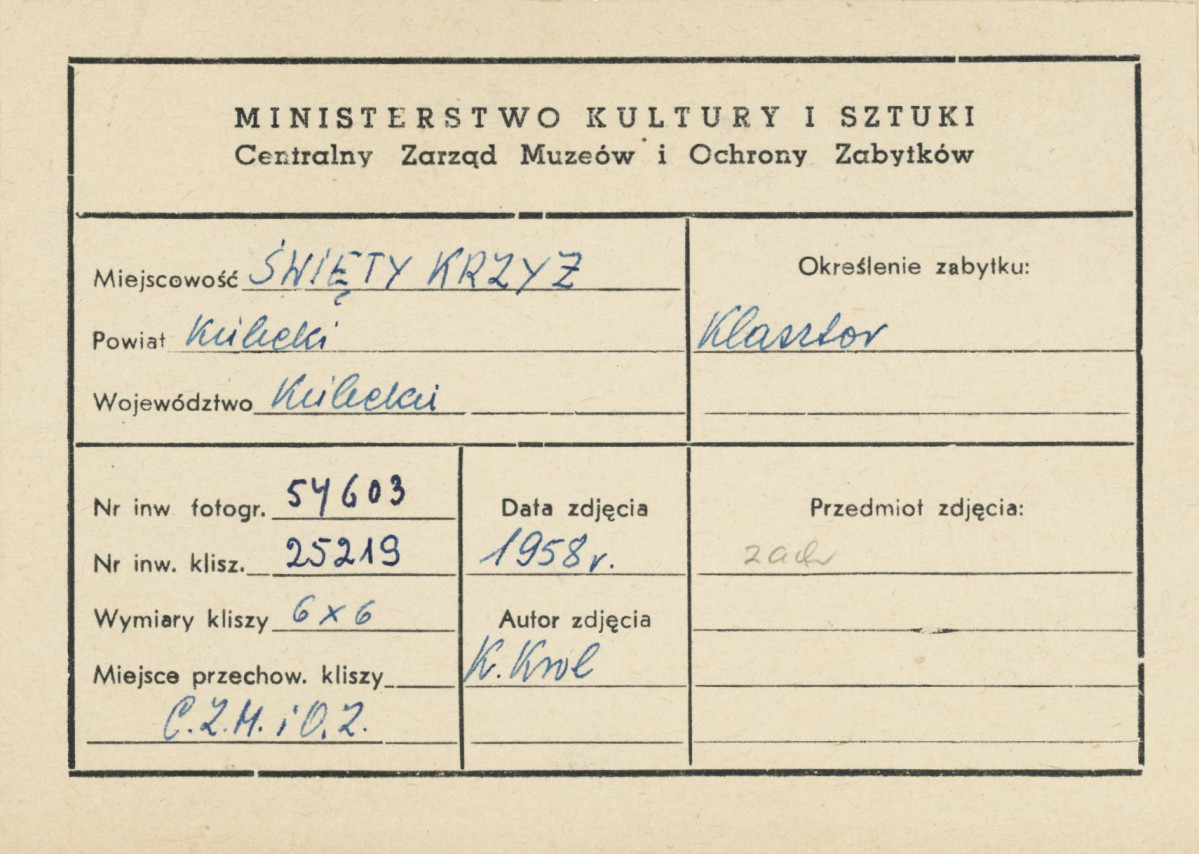 MINISTERSTWO KULTURY I SZTUKI
Centralny Zarząd Muzeów i Ochrony Zabytków
Miejscowość ŚWIĘTY KRZYZ
Powiat Kielecki
Województwo Kielecki
Określenie zabytku:
Klasztor
Nr inw fotogr. 54603
Nr inw. klisz. 25219
Wymiary kliszy 6 x 6
Miejsce przechow. kliszy
C.Z.M. i O.Z.
Data zdjęcia
1958 r.
Autor zdjęcia
K. Krol
Przedmiot zdjęcia:
zach